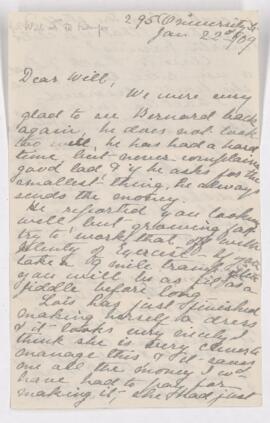 295 University St
Jan 22nd 09
Dear Will,
We were very
glad to see Bernard back
again, he does not look
too well, he has had a hard
time, but never complains
good lad & if he asks for the
smallest thing, he always
sends the money.
He reported you looking
well but growing fat
try to work that off with
plenty of exercise if you
take a 9 mile tramp
you will be as fit as a
fiddle before long
Lois has just finished
making herself a dress
& it looks very nicely I
think she is very clever to
manage this & it saves
me all the money I w
have had to pay for
making it. She had just